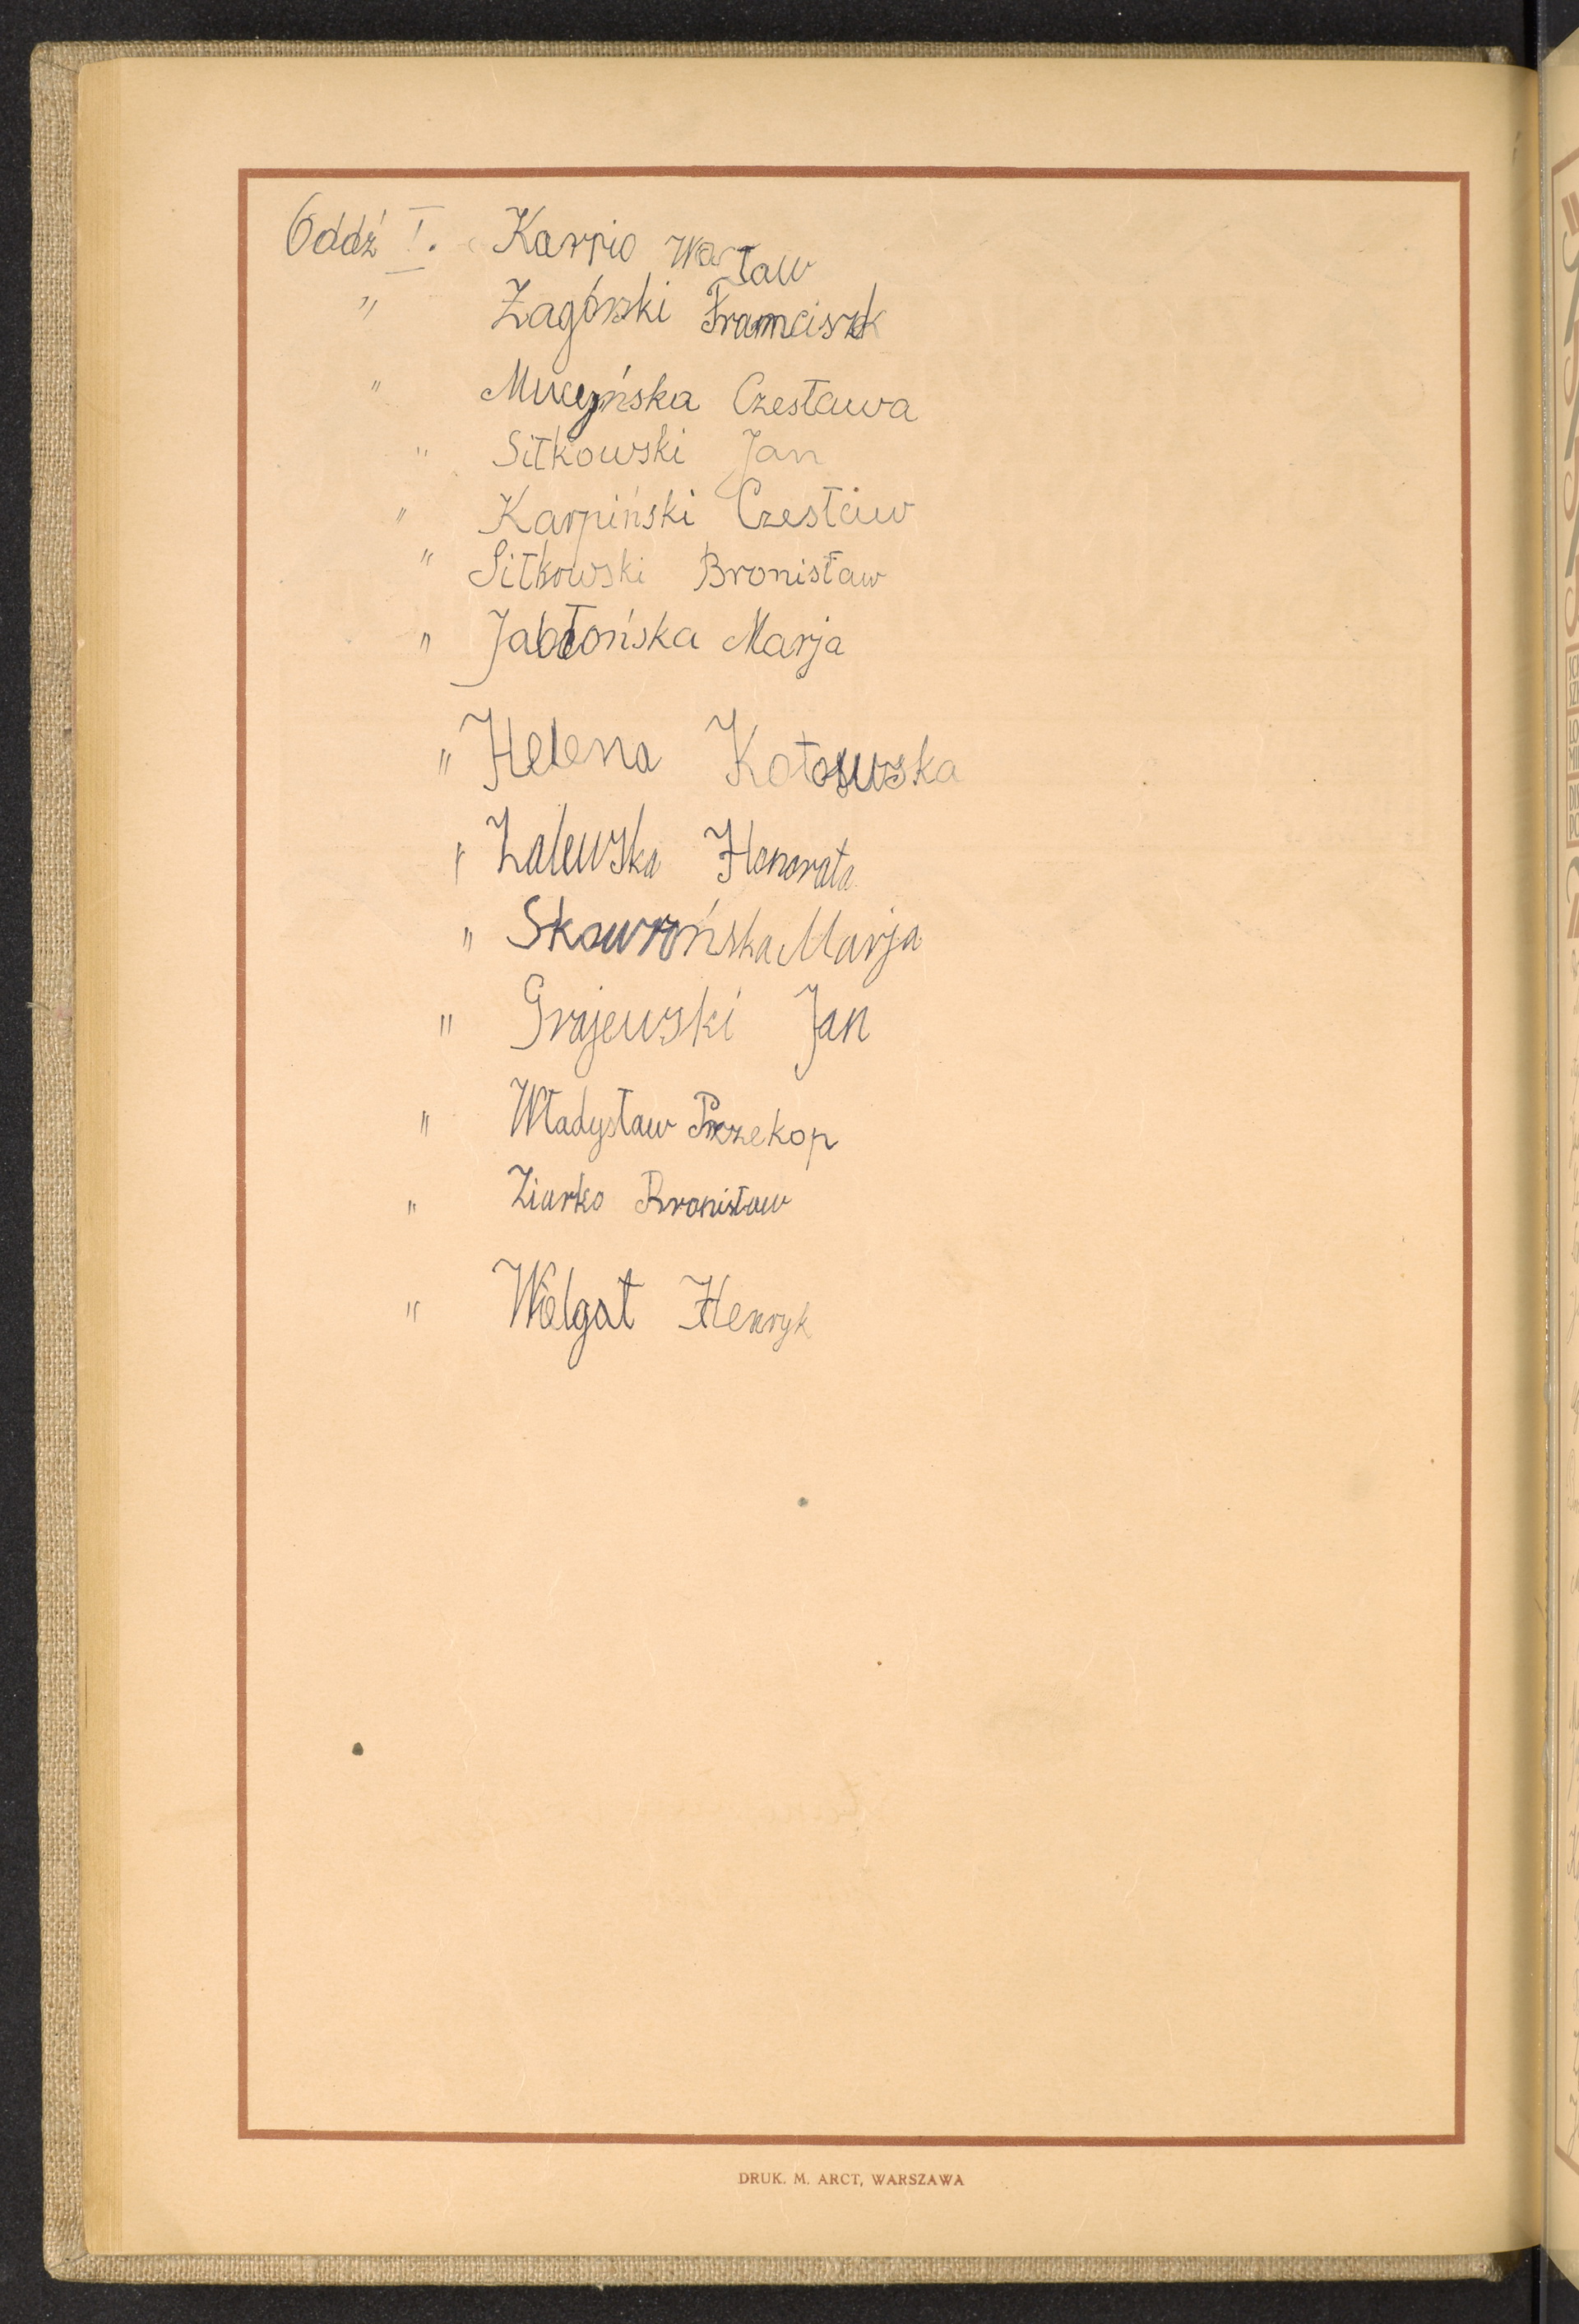 Oddź I. Karpio Wacław
" Zagórski Franciszk
" Muczyńska Czesława
" Sitkowski Jan
" Karpiński Czesław
" Sitkowski Bronisław
" Jabłońska Marja
" Helena Kotowska
" Zalewska Honorata
" Skowrońska Marja
" Grajewski Jan
" Władysław Przekop
" Ziarko Bronisław
" Wielgat Henryk
DRUK. M. ARCT, WARSZAWA